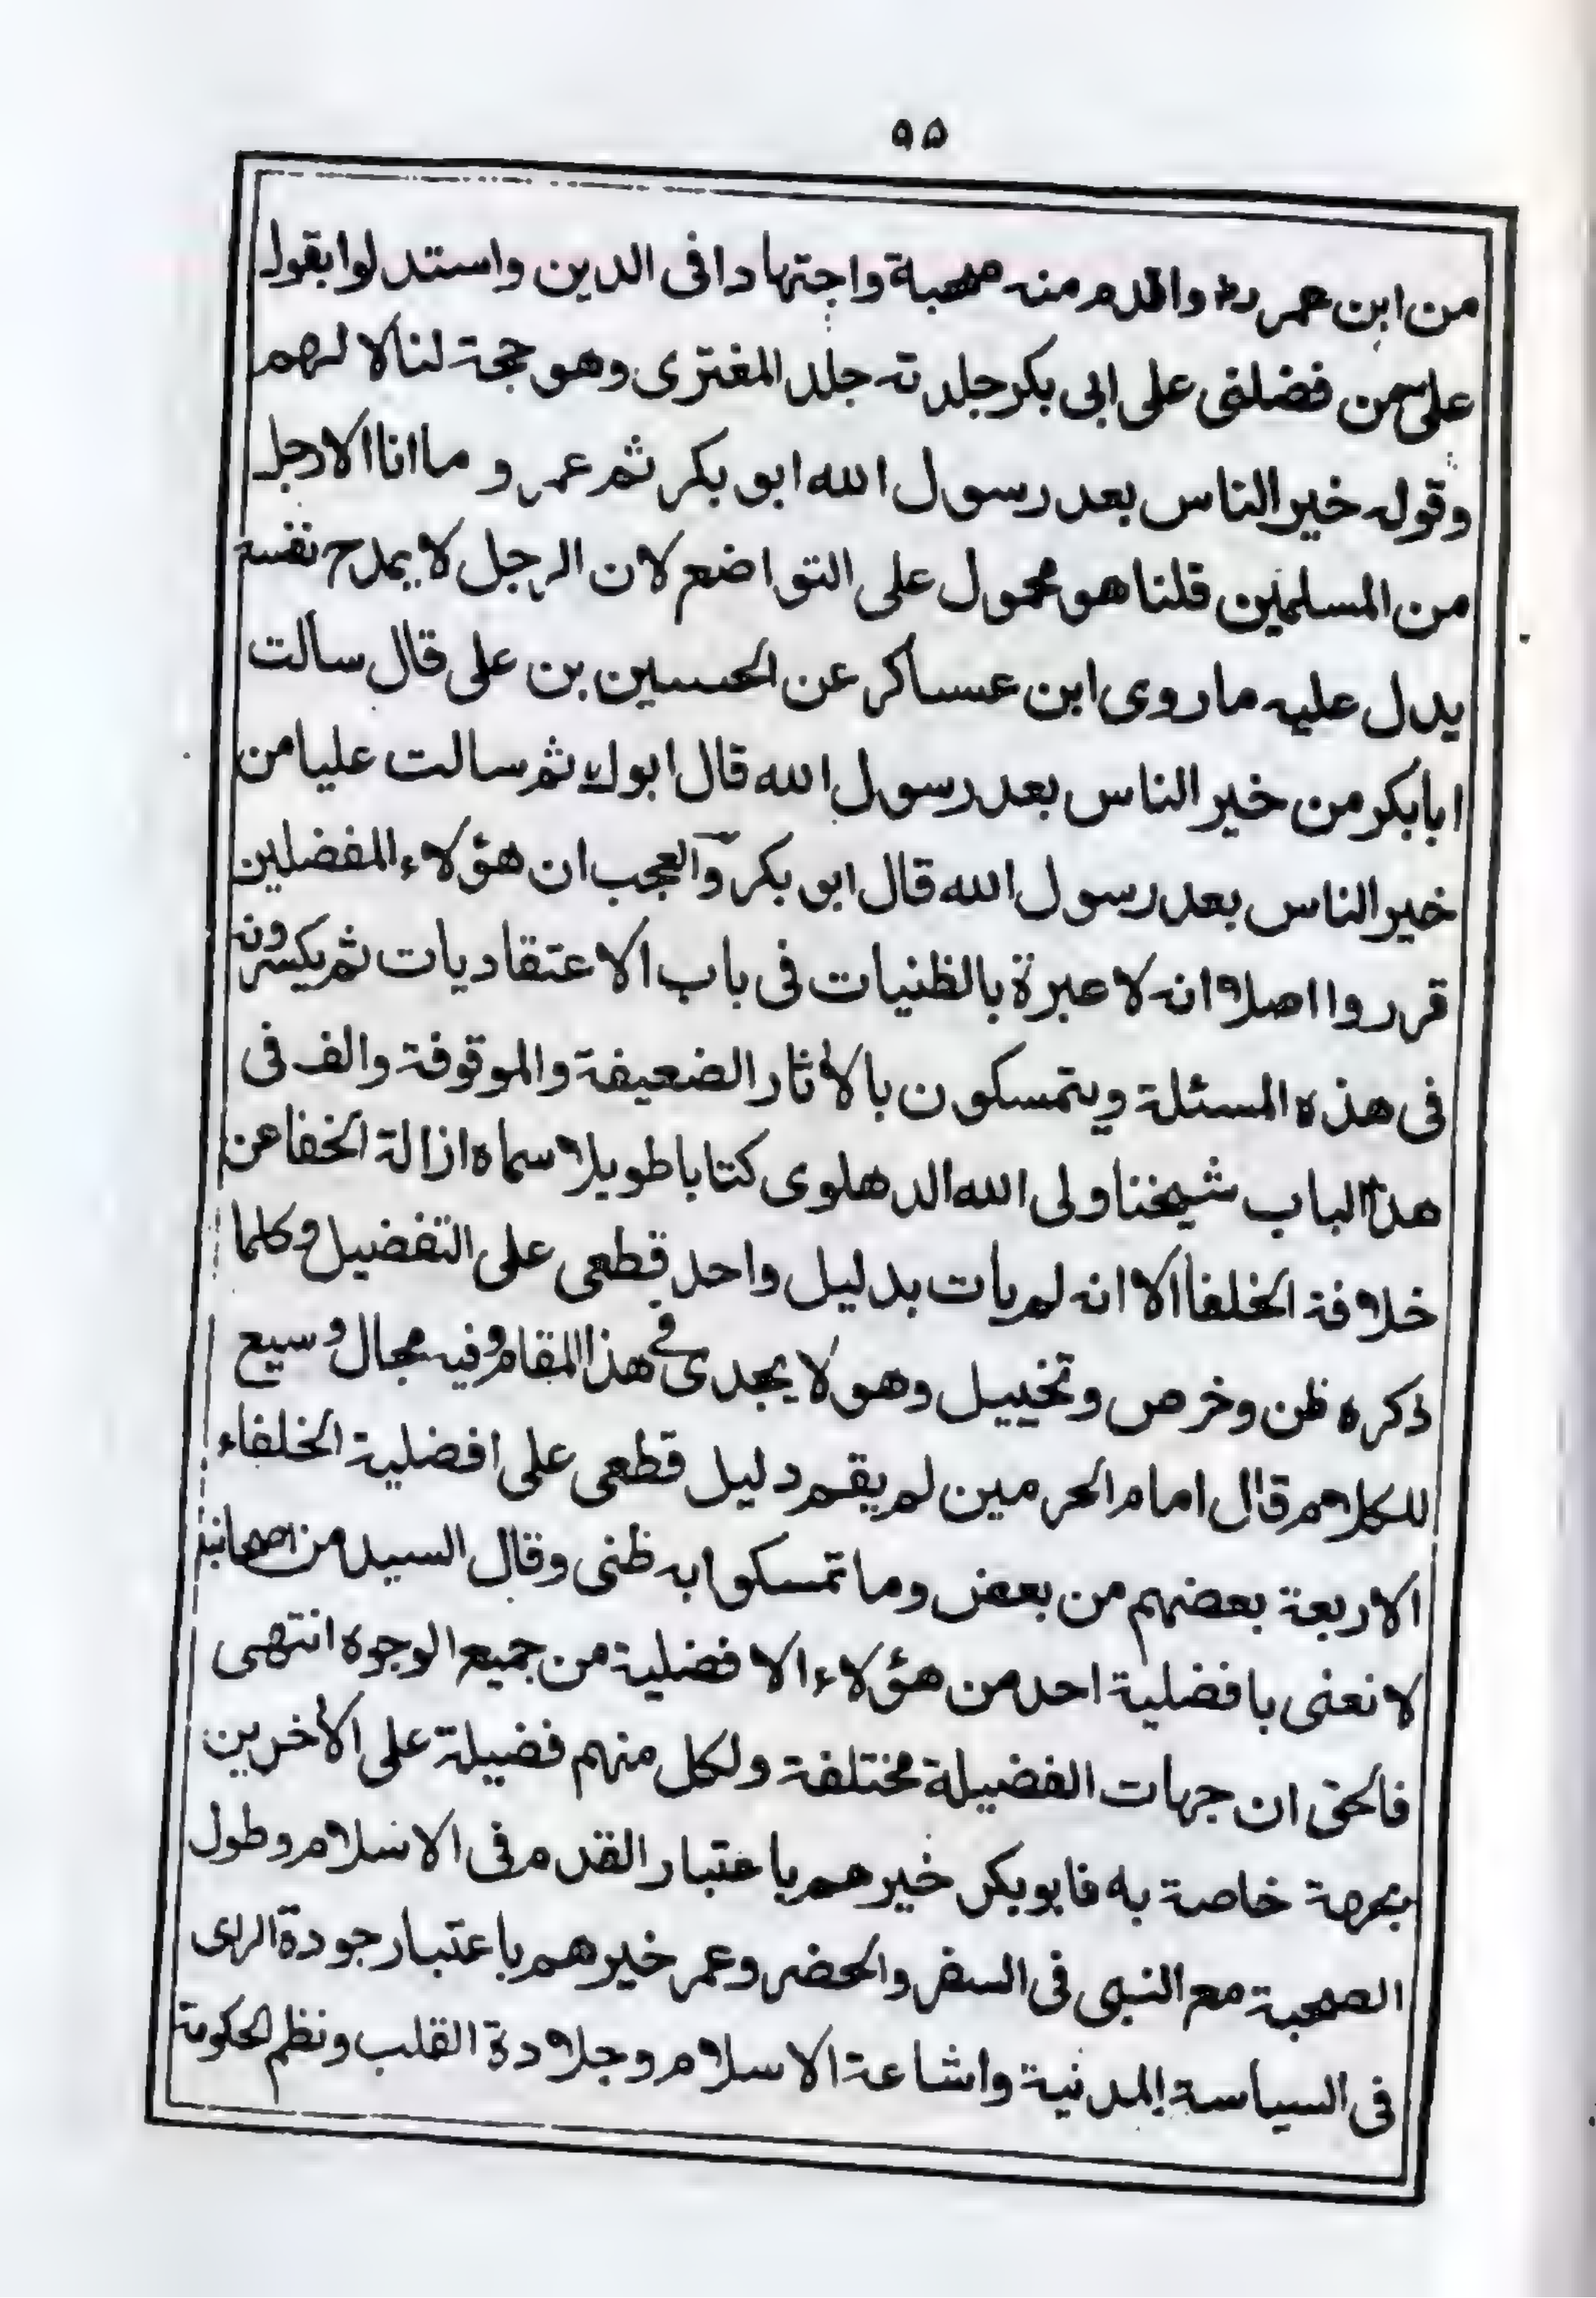 ٩٥
من ابن عمر رض واقدم منه صحبة واجتهادا فى الدين واستدلوا بقول
على من فضلنى على ابى بكر جلدته جلد المفترى وهو حجة لنا لا لهم
وقوله خير الناس بعد رسول الله ابو بكر ثم عمر و ما انا الا رجل
من المسلمين قلنا هو محمول على التواضع لان الرجل لا يمدح نفسه
يدل عليه ما روى ابن عساكر عن الحسين بن على قال سالت
ابا بكر من خير الناس بعد رسول الله قال ابوك ثم سالت عليا من
خير الناس بعد رسول الله قال ابو بكر والعجب ان هؤلاء المفضلين
قرروا اصلا انه لا عبرة بالظنيات فى باب الاعتقاديات ثم يكسرونه
فى هذه المسئلة ويتمسكون بالأثار الضعيفة والموقوفة والف فى
هذا الباب شيخنا ولى الله الدهلوى كتابا طويلا سماه ازالة الخفا عن
خلافة الخلفا الا انه لم يات بدليل واحد قطعى على التفضيل وكلما
ذكره ظن وخرص وتخييل وهو لا يجدى فى هذا المقام وفيه مجال وسيع
للكلام قال امام الحرمين لم يقم دليل قطعى على افضلية الخلفاء
الاربعة بعضهم من بعض وما تمسكوا به ظنى وقال السيد من اصحابنا
لا نعنى بافضلية احد من هؤلاء الافضلية من جميع الوجوه انتهى
فالحق ان جهات الفضيلة مختلفة ولكل منهم فضيلة على الأخرين
بجهة خاصة به فابو بكر خيرهم باعتبار القدم فى الاسلام وطول
الصحبة مع النبى فى السفر والحضر وعمر خيرهم باعتبار جودة الراى
فى السياسة المدنية واشاعة الاسلام وجلادة القلب ونظم الحكومة